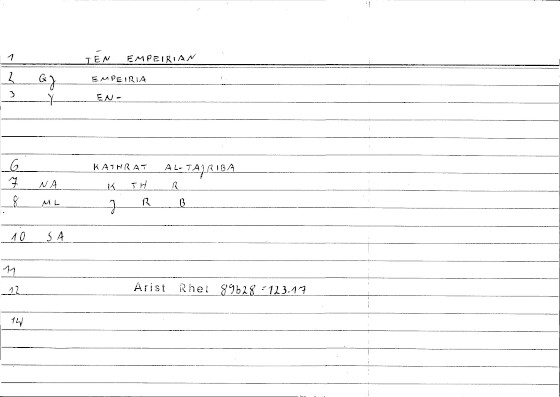 1 TĒN EMPEIRIAN
2 Gj EMPEIRIA
3 Y EN-
6 KATHRAT AL-TAJRIBA
7 NA K TH R
8 ML J R B
10 SA
11
12 Arist Rhet 89b28 = 123.17
14